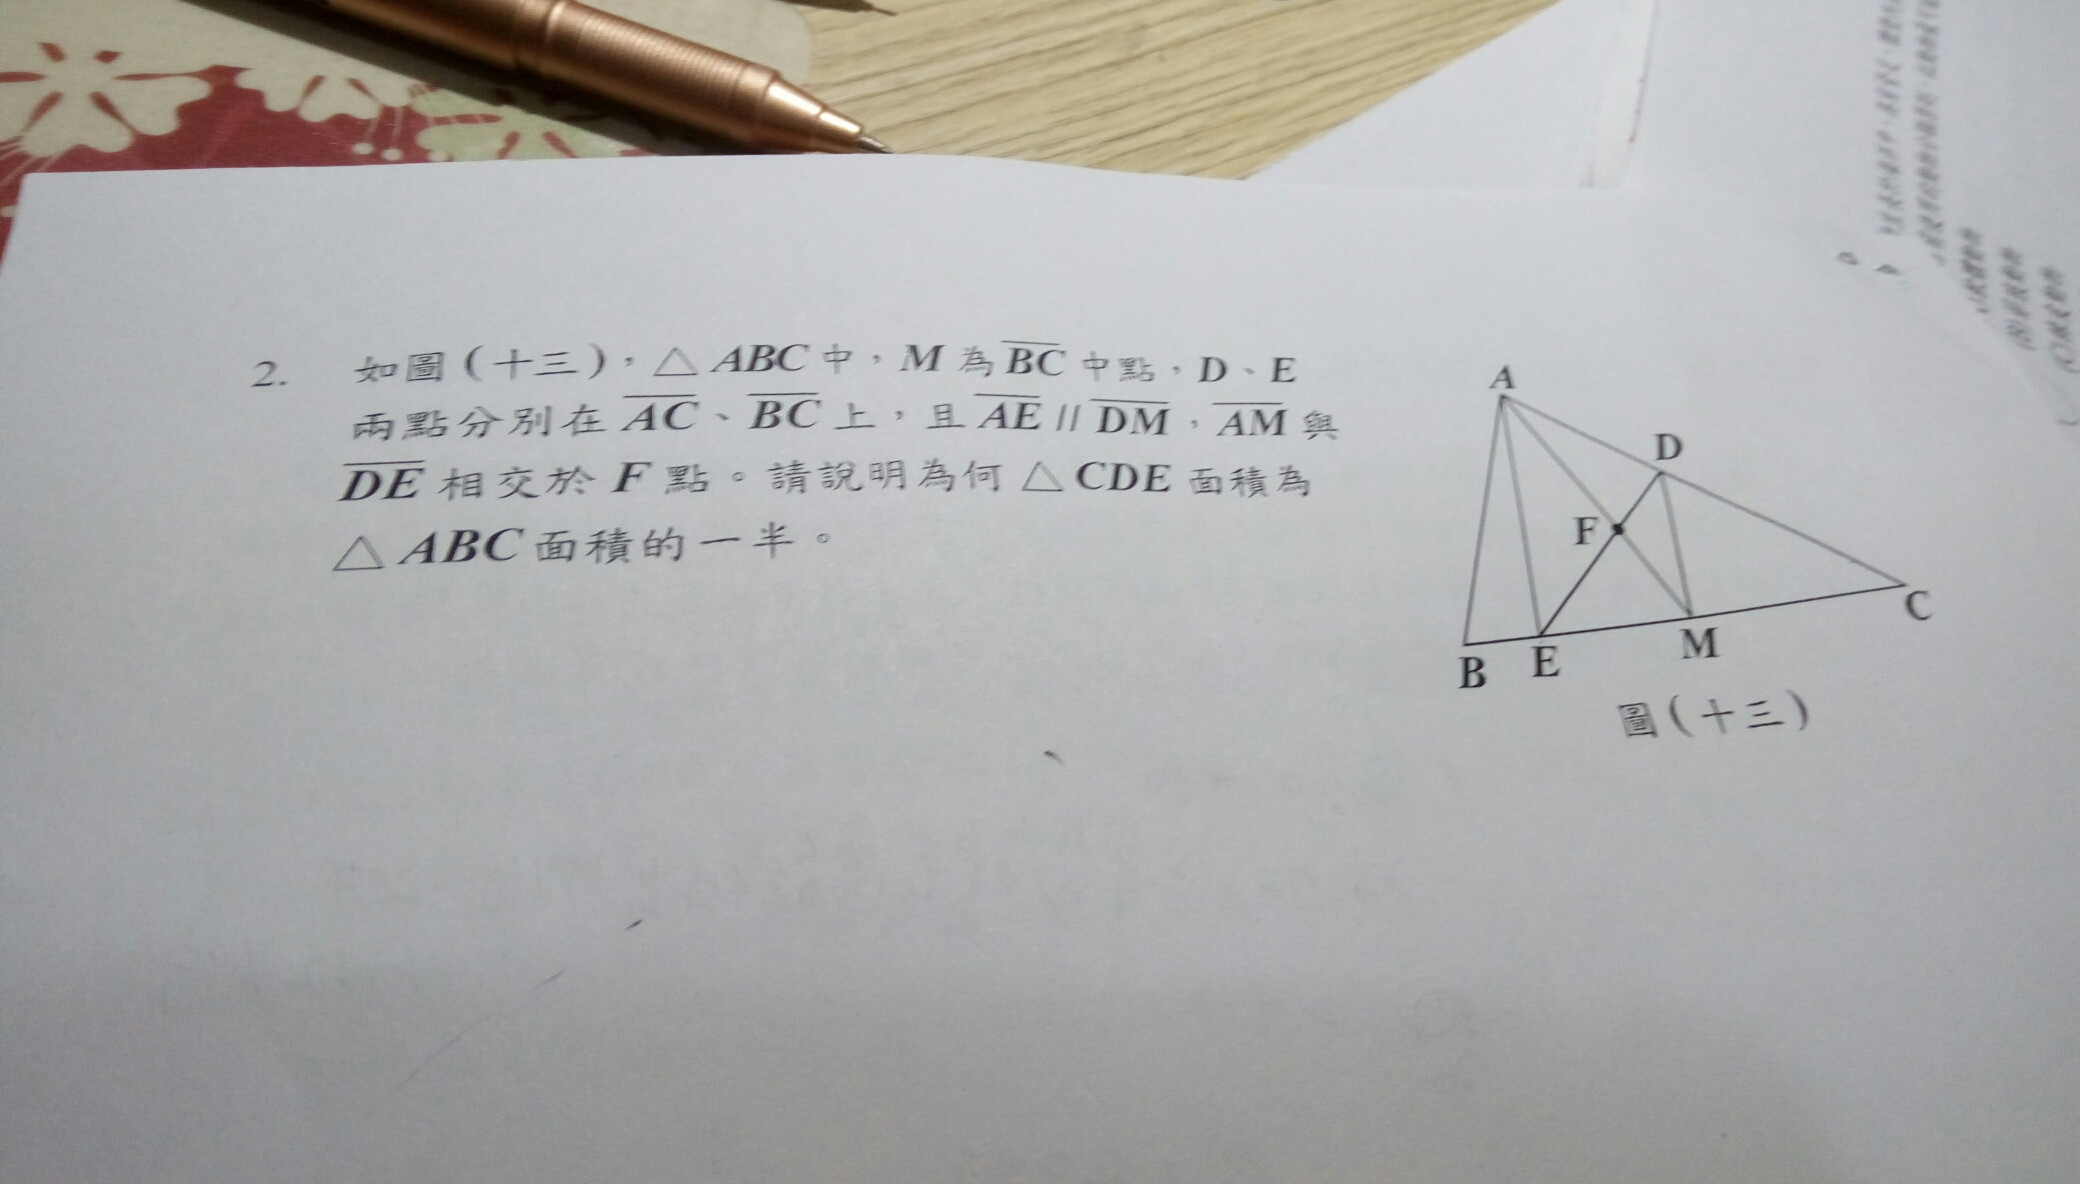 2. 如圖(十三),△ABC中,M為BC中點,D、E
兩點分別在AC、BC上,且AE//DM,AM與
DE相交於F點。請說明為何△CDE面積為
△ABC面積的一半。
A
D
F
C
B E M
圖(十三)